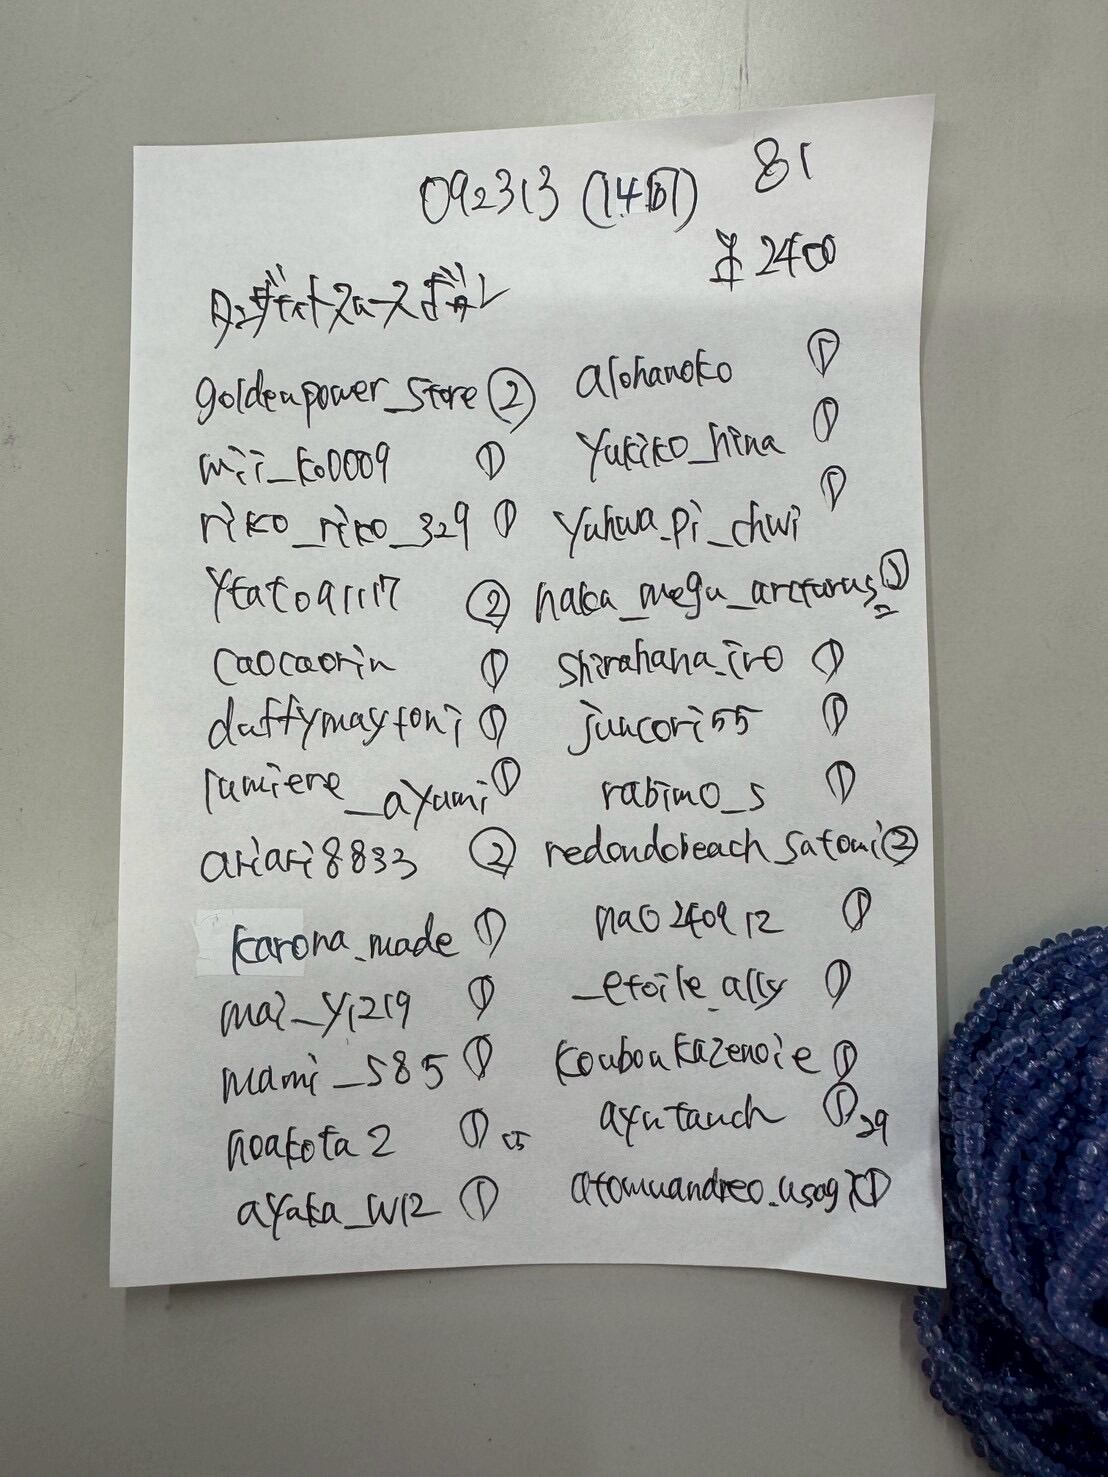 092313 (14時) 81
¥2400
タンザナイトスムースボタン
goldenpower_store ②
mii_ko0009 ①
riko_riko_329 ①
ytato91117 ②
caocaorin ①
daffymaytoni ①
lumiere_ayumi ①
ariari8833 ②
karona_made ①
mai_y1219 ①
mami_s85 ①
noakota2 ① 15
ayaka_w12 ①
alohanoko ①
yukiko_hina ①
yuhwa_pi_chwi ①
naka_megu_arcturus ①
2
shirahana_iro ①
juncori55 ①
rabimo_s ①
redondobeach_satomi ②
nao240912 ①
_etoile_ally ①
kouboukazenoie ①
ayutauch ① 29
atomuandreo.usagi ①